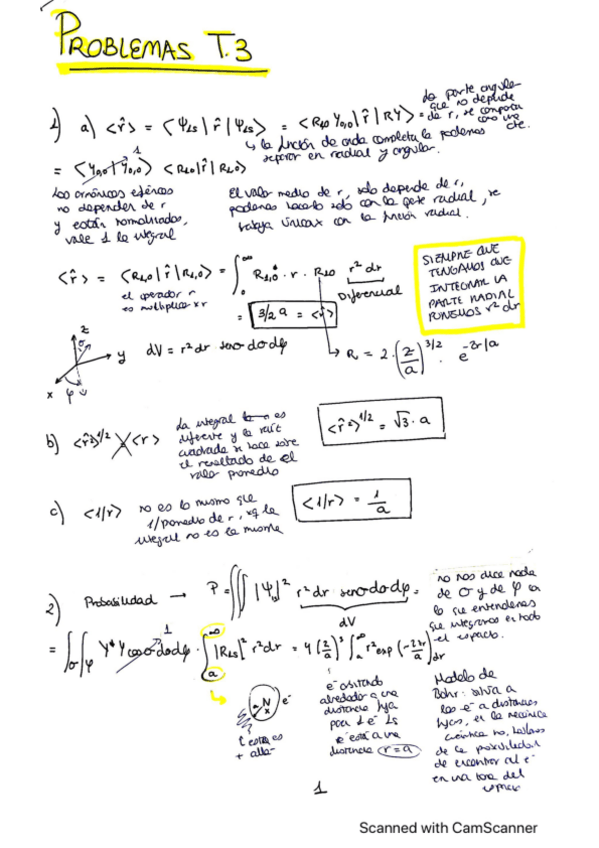 PROBLEMAS T.3
1) a) <r̂> = <Ψ1s | r̂ | Ψ1s> = <R1,0 Y0,0 | r̂ | RY> =
la parte angular
que no depende
de r, se comporta
como una
cte.
↳ la función de onda completa la podemos
separar en radial y angular.
= <Y0,0 | Y0,0> 1 <R1,0 | r̂ | R1,0>
Los armónicos esféricos
no dependen de r
y están normalizados,
vale 1 la integral
El valor medio de r, solo depende de r,
podemos hacerlo solo con la parte radial, se
trabaja únicax con la función radial.
<r̂> = <R1,0 | r̂ | R1,0> = ∫₀^∞ R1,0* · r · R1,0 r² dr
el operador r
es multiplicar x r
Diferencial
= 3/2 a = <r̂>
SIEMPRE QUE
TENGAMOS QUE
INTEGRAR LA
PARTE RADIAL
PONEMOS r² dr
z
y
x φ
dV = r² dr senσ dσ dφ
↳ R = 2 · (z/a)^3/2 · e^-zr/a
b) <r̂²>^1/2 <r>
La integral es
diferente y la raíz
cuadrada se hace sobre
el resultado de el
valor promedio
<r̂²>^1/2 = √3 · a
c) <1/r>
no es lo mismo que
1/promedio de r, xq la
integral no es la misma
<1/r> = 1/a
2) Probabilidad → P = ∫∫∫ |Ψ|² r² dr senσ dσ dφ =
dV
no nos dice nada
de σ y de φ
lo que entendemos
que integramos en todo
el espacio.
= ∫σ ∫φ Y* Y dσ dφ 1 · ∫a^∞ |R1s|² r² dr = 4 (z/a)³ ∫a^∞ r² exp(-2zr/a) dr
N
e⁻
+ allá
e⁻
alrededor a una
distancia fija
para 1 e⁻ 1s
e⁻ está a una
distancia r=a
Modelo de
Bohr: sitúa a
los e⁻ a distancias
fijas, en la mecánica
cuántica no, hablamos
de la probabilidad
de encontrar al e⁻
en una zona del
espacio
1
Scanned with CamScanner